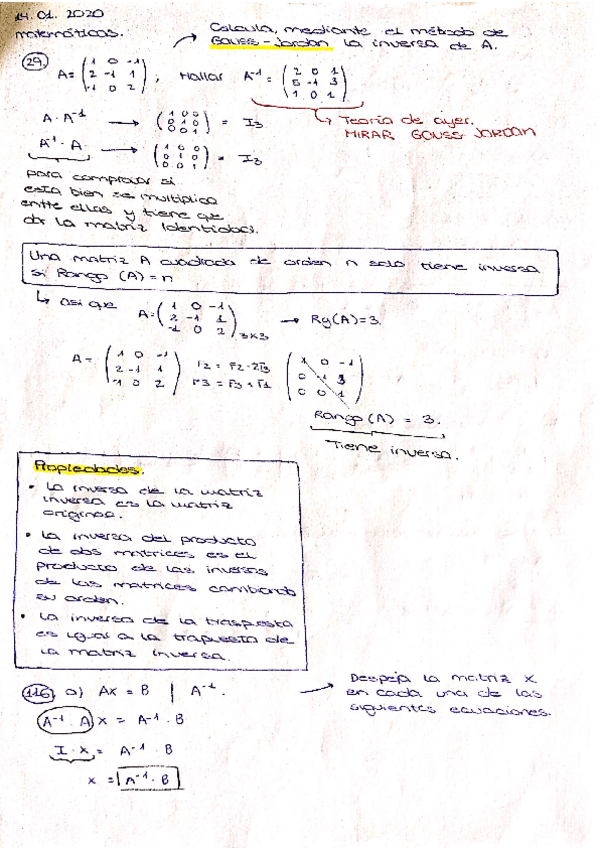 14.01.2020
matemáticas.
Calcula, mediante el método de
Gauss-Jordan la inversa de A.
29 A = ( 1 0 -1 / 2 -1 1 / -1 0 2 ), Hallar A⁻¹ = ( 2 0 1 / 5 -1 3 / 1 0 1 )
A · A⁻¹ → ( 1 0 0 / 0 1 0 / 0 0 1 ) = I3
↳ Teoría de ayer.
MIRAR GAUSS JORDAN
A⁻¹ · A → ( 1 0 0 / 0 1 0 / 0 0 1 ) = I3
para comprobar si
esta bien se multiplica
entre ellas y tiene que
dar la matriz Identidad.
Una matriz A cuadrada de orden n solo tiene inversa
si Rango (A) = n
↳ asi que A = ( 1 0 -1 / 2 -1 1 / -1 0 2 ) 3x3 → Rg(A) = 3.
A = ( 1 0 -1 / 2 -1 1 / -1 0 2 ) r2 = r2 - 2r1 r3 = r3 + r1 ( 1 0 -1 / 0 -1 3 / 0 0 1 )
Rango (A) = 3.
Tiene inversa.
Propiedades.
• La inversa de la matriz
inversa es la matriz
original.
• La inversa del producto
de dos matrices es el
producto de las inversas
de las matrices cambiando
su orden.
• La inversa de la traspuesta
es igual a la trapuesta de
la matriz inversa.
116 a) AX = B | A⁻¹.
→ Despeja la matriz X
en cada una de las
siguientes ecuaciones.
A⁻¹ · A x = A⁻¹ · B
I · x = A⁻¹ · B
x = A⁻¹ · B